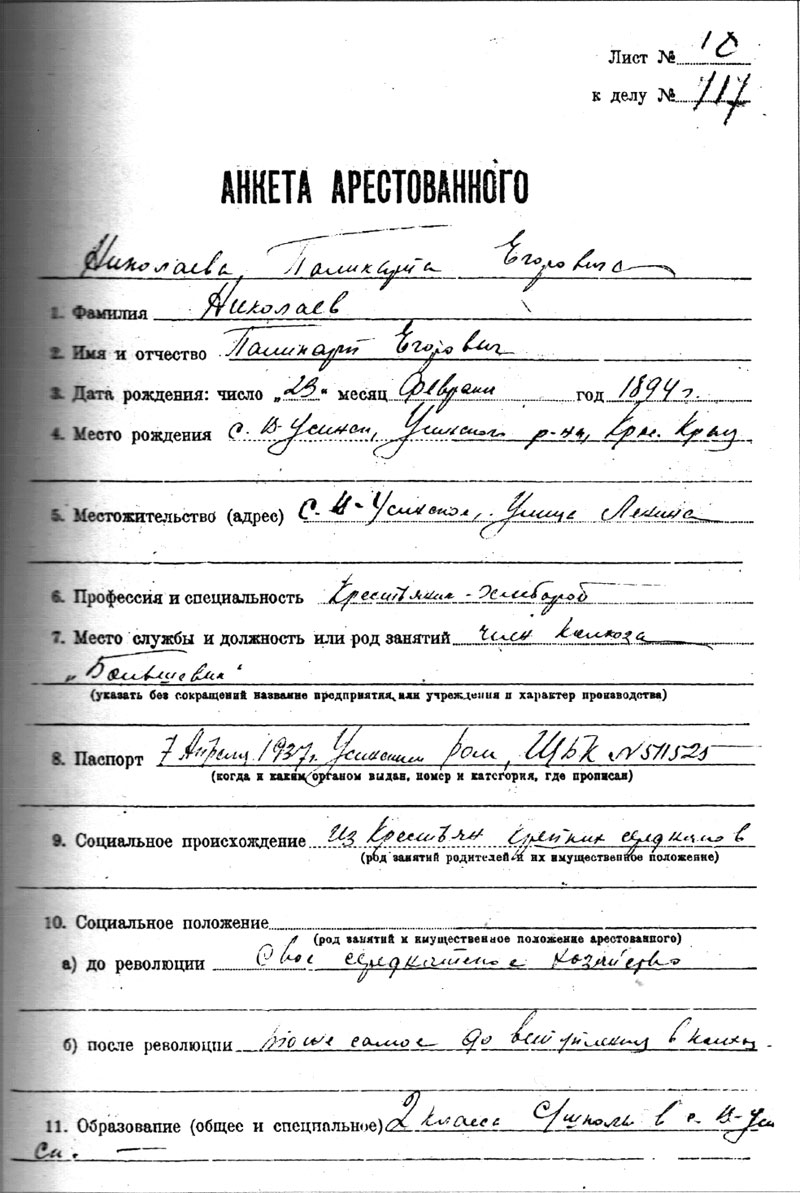 Лист № 10
к делу № 717
АНКЕТА АРЕСТОВАННОГО
Николаева, Паликарпа Егоровича
1. Фамилия Николаев
2. Имя и отчество Паликарп Егорович
3. Дата рождения: число „23“ месяц февраля год 1894 г.
4. Место рождения с. В-Усинск, Усинского р-на, Крас. Края
5. Местожительство (адрес) с. В-Усинское, Улица Ленина
6. Профессия и специальность Крестьянин-хлебороб
7. Место службы и должность или род занятий член колхоза
„Большевик“
(указать без сокращений название предприятия или учреждения и характер производства)
8. Паспорт 7 Апреля 1937г. Усинским ром, ЩБК № 511525
(когда и каким органом выдан, номер и категория, где прописан)
9. Социальное происхождение из Крестьян крепких середняков
(род занятий родителей и их имущественное положение)
10. Социальное положение
(род занятий и имущественное положение арестованного)
а) до революции свое середнатское хозяйство
б) после революции тоже самое до вступления в колхоз
11. Образование (общее и специальное) 2 класса с/школы в с. В-Уси
ск.